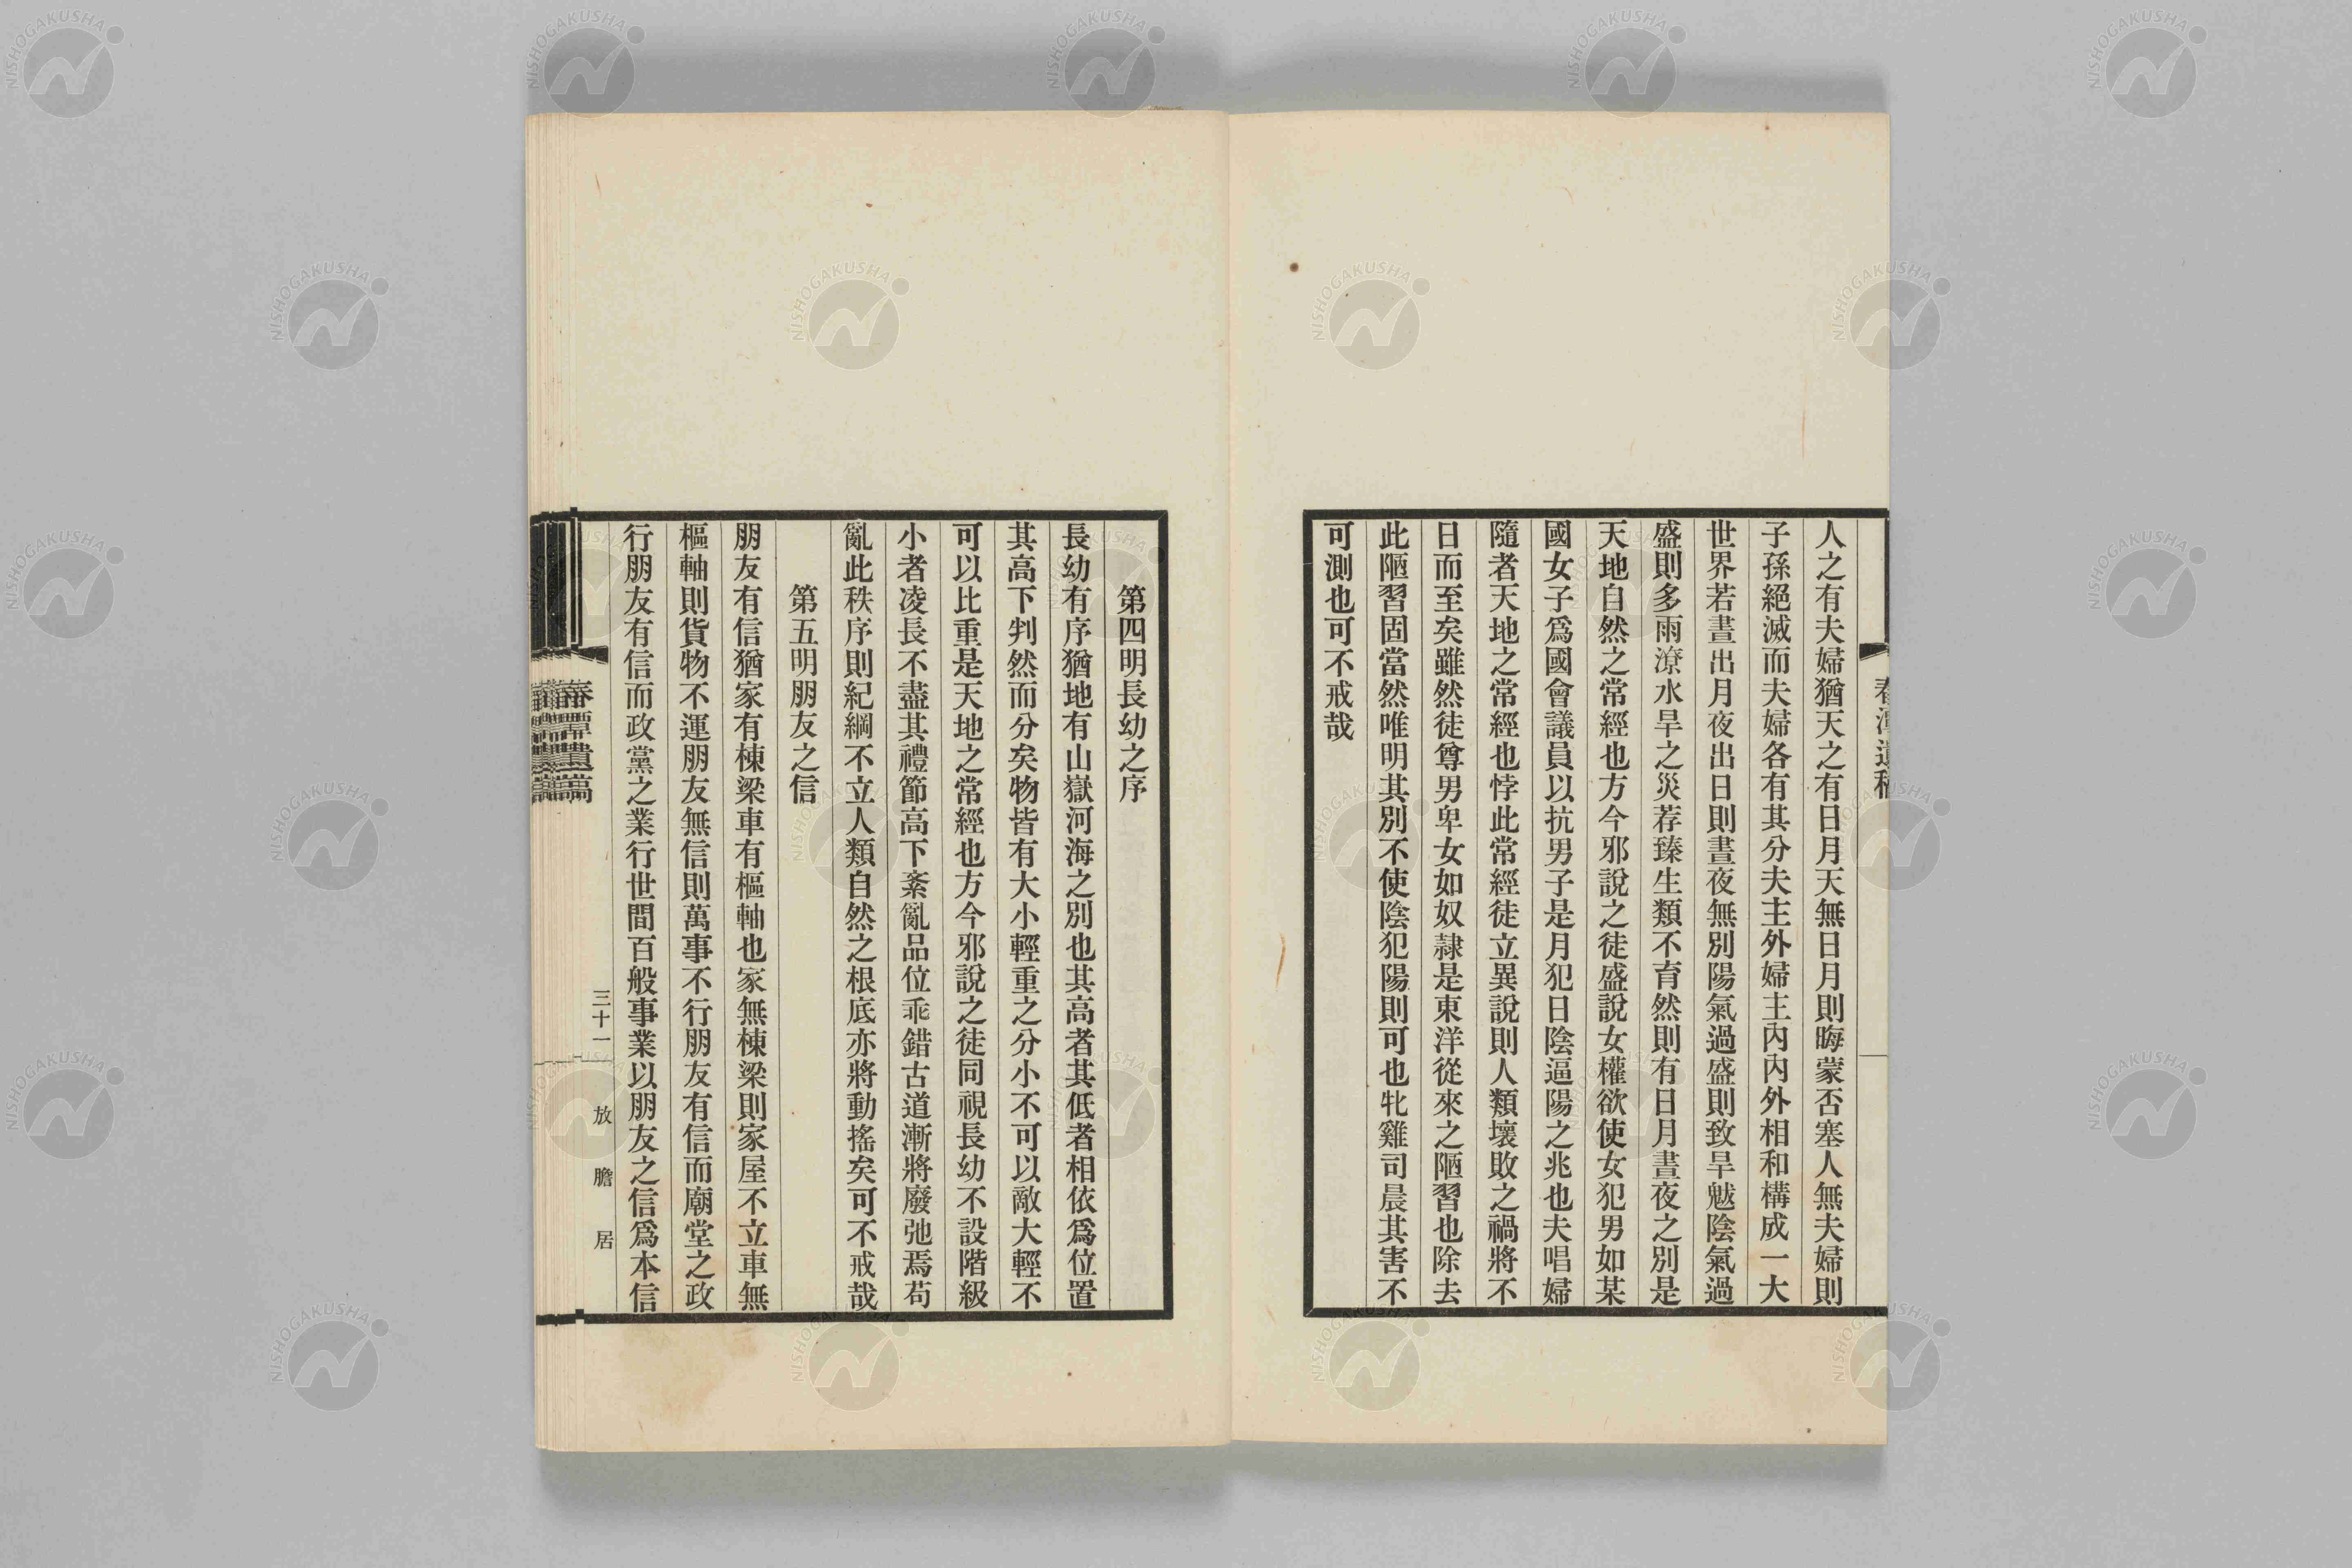 春潭遺稿
人之有夫婦猶天之有日月天無日月則晦蒙否塞人無夫婦則
子孫絕滅而夫婦各有其分夫主外婦主內內外相和構成一大
世界若晝出月夜出日則晝夜無別陽氣過盛則致旱魃陰氣過
盛則多雨潦水旱之災荐臻生類不育然則有日月晝夜之別是
天地自然之常經也方今邪說之徒盛說女權欲使女犯男如某
國女子爲國會議員以抗男子是月犯日陰逼陽之兆也夫唱婦
隨者天地之常經也悖此常經徒立異說則人類壞敗之禍將不
日而至矣雖然徒尊男卑女如奴隷是東洋從來之陋習也除去
此陋習固當然唯明其別不使陰犯陽則可也牝雞司晨其害不
可測也可不戒哉
第四明長幼之序
長幼有序猶地有山嶽河海之別也其高者其低者相依爲位置
其高下判然而分矣物皆有大小輕重之分小不可以敵大輕不
可以比重是天地之常經也方今邪說之徒同視長幼不設階級
小者凌長不盡其禮節高下紊亂品位乖錯古道漸將廢弛焉苟
亂此秩序則紀綱不立人類自然之根底亦將動搖矣可不戒哉
第五明朋友之信
朋友有信猶家有棟梁車有樞軸也家無棟梁則家屋不立車無
樞軸則貨物不運朋友無信則萬事不行朋友有信而廟堂之政
行朋友有信而政黨之業行世間百般事業以朋友之信爲本信
三十一
放膽居
NISHOGAKUSHA